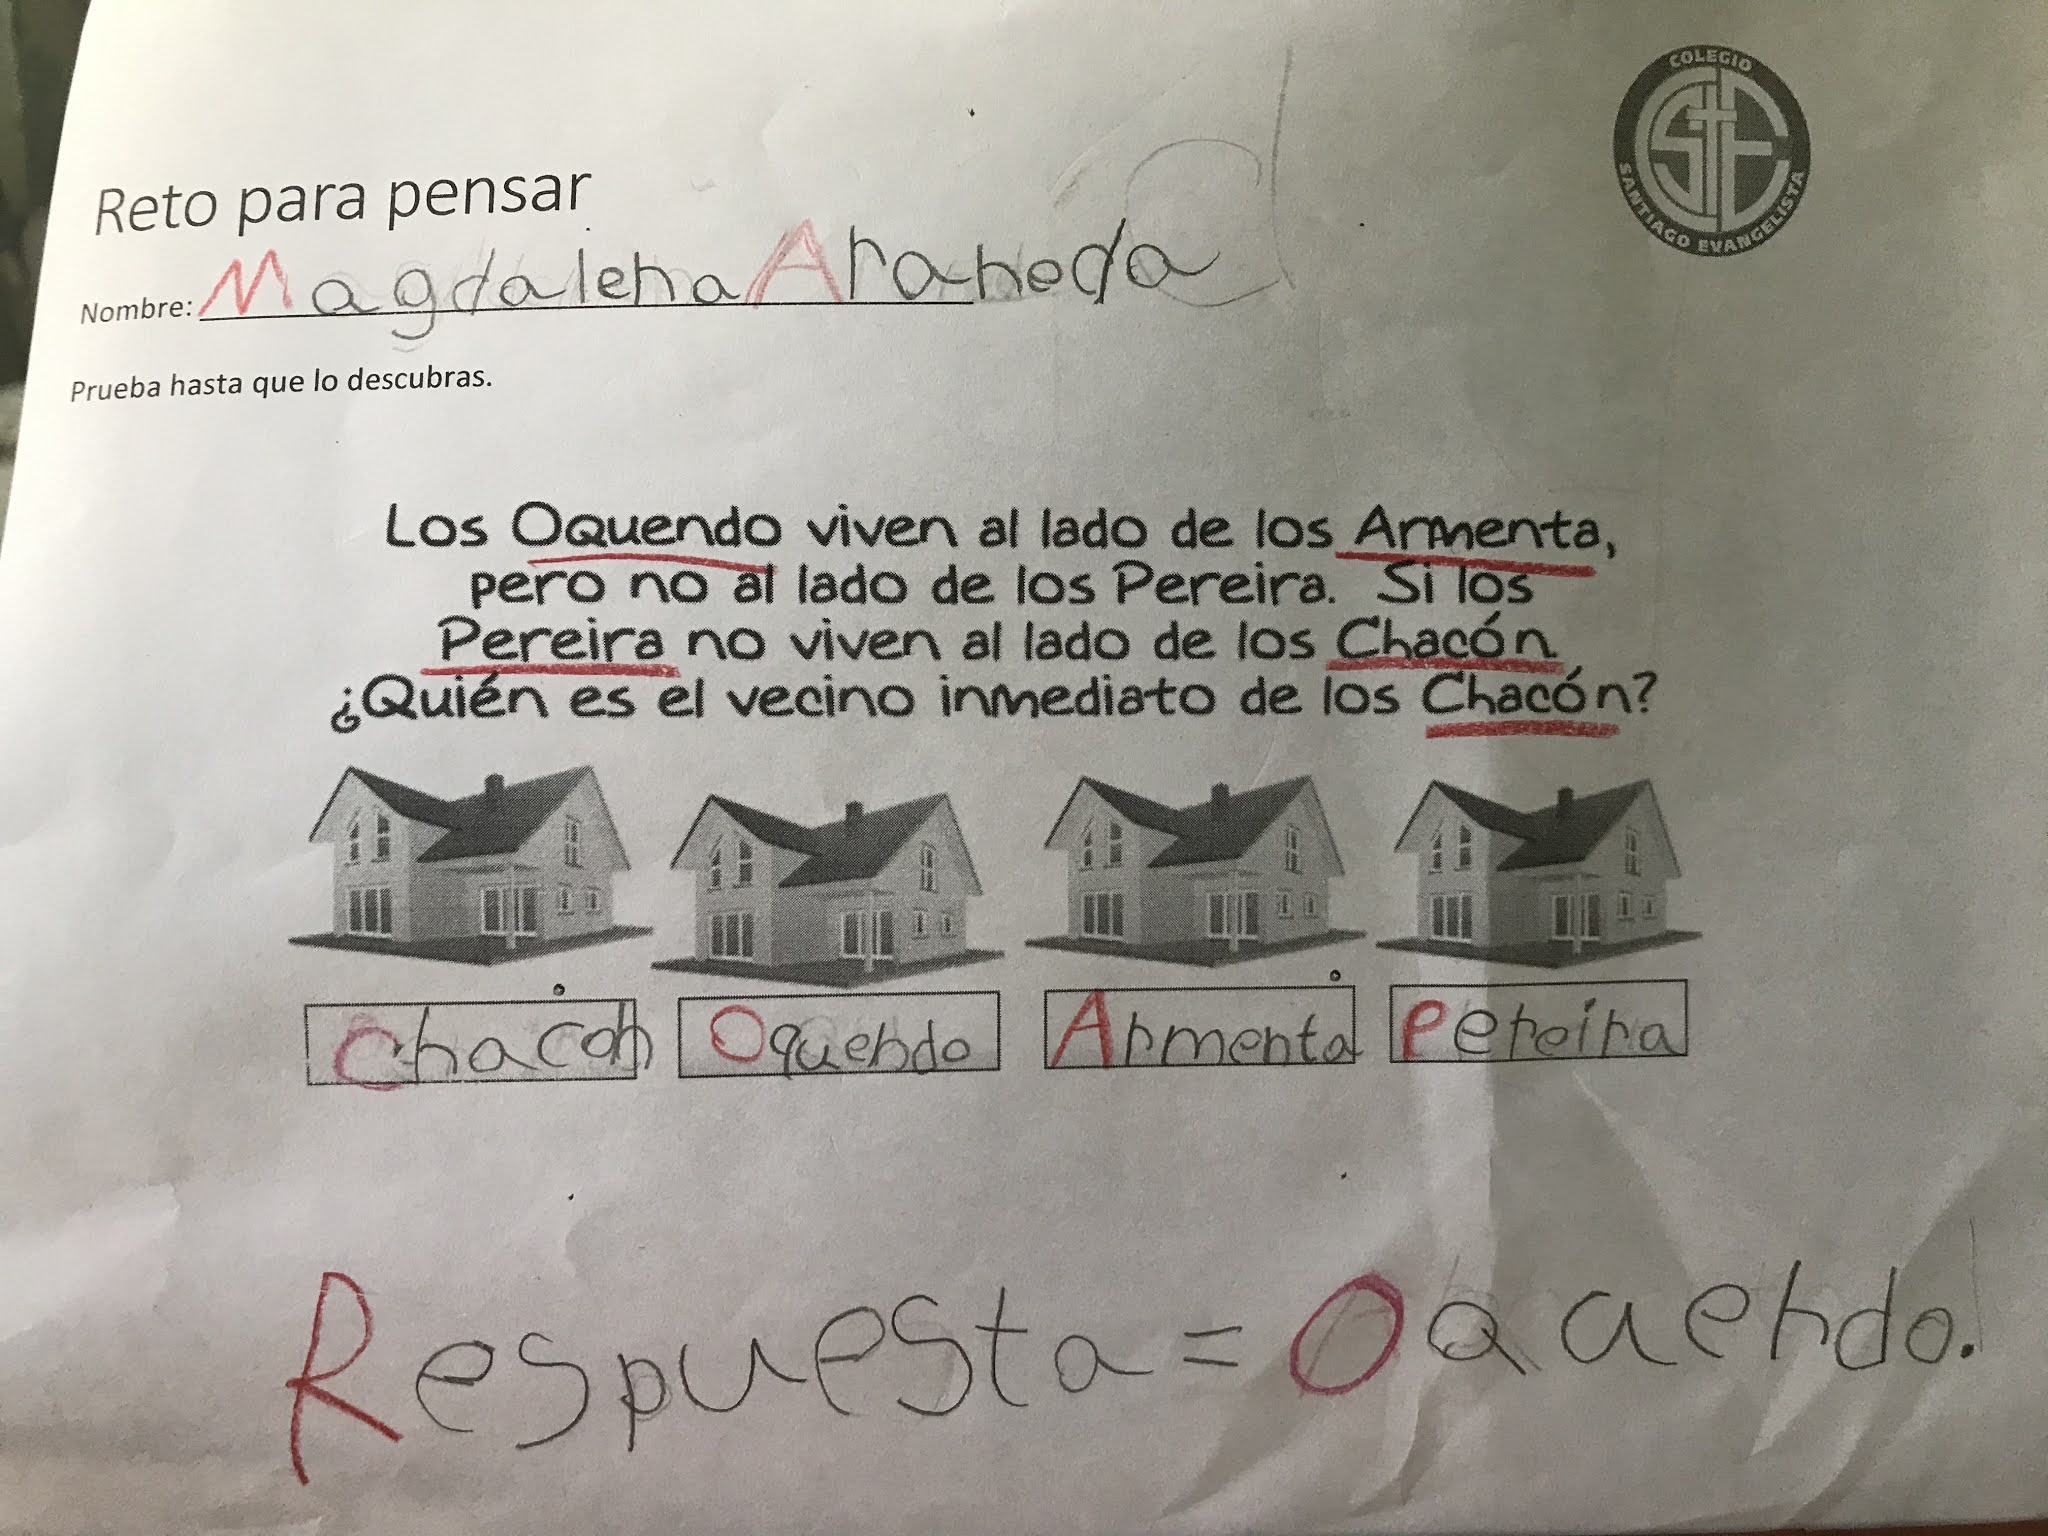 COLEGIO
SANTIAGO EVANGELISTA
Reto para pensar
Nombre: Magdalena Araneda
Prueba hasta que lo descubras.
Los Oquendo viven al lado de los Armenta,
pero no al lado de los Pereira. Si los
Pereira no viven al lado de los Chacón.
¿Quién es el vecino inmediato de los Chacón?
Chacón Oquendo Armenta Pereira
Respuesta = Oquendo.